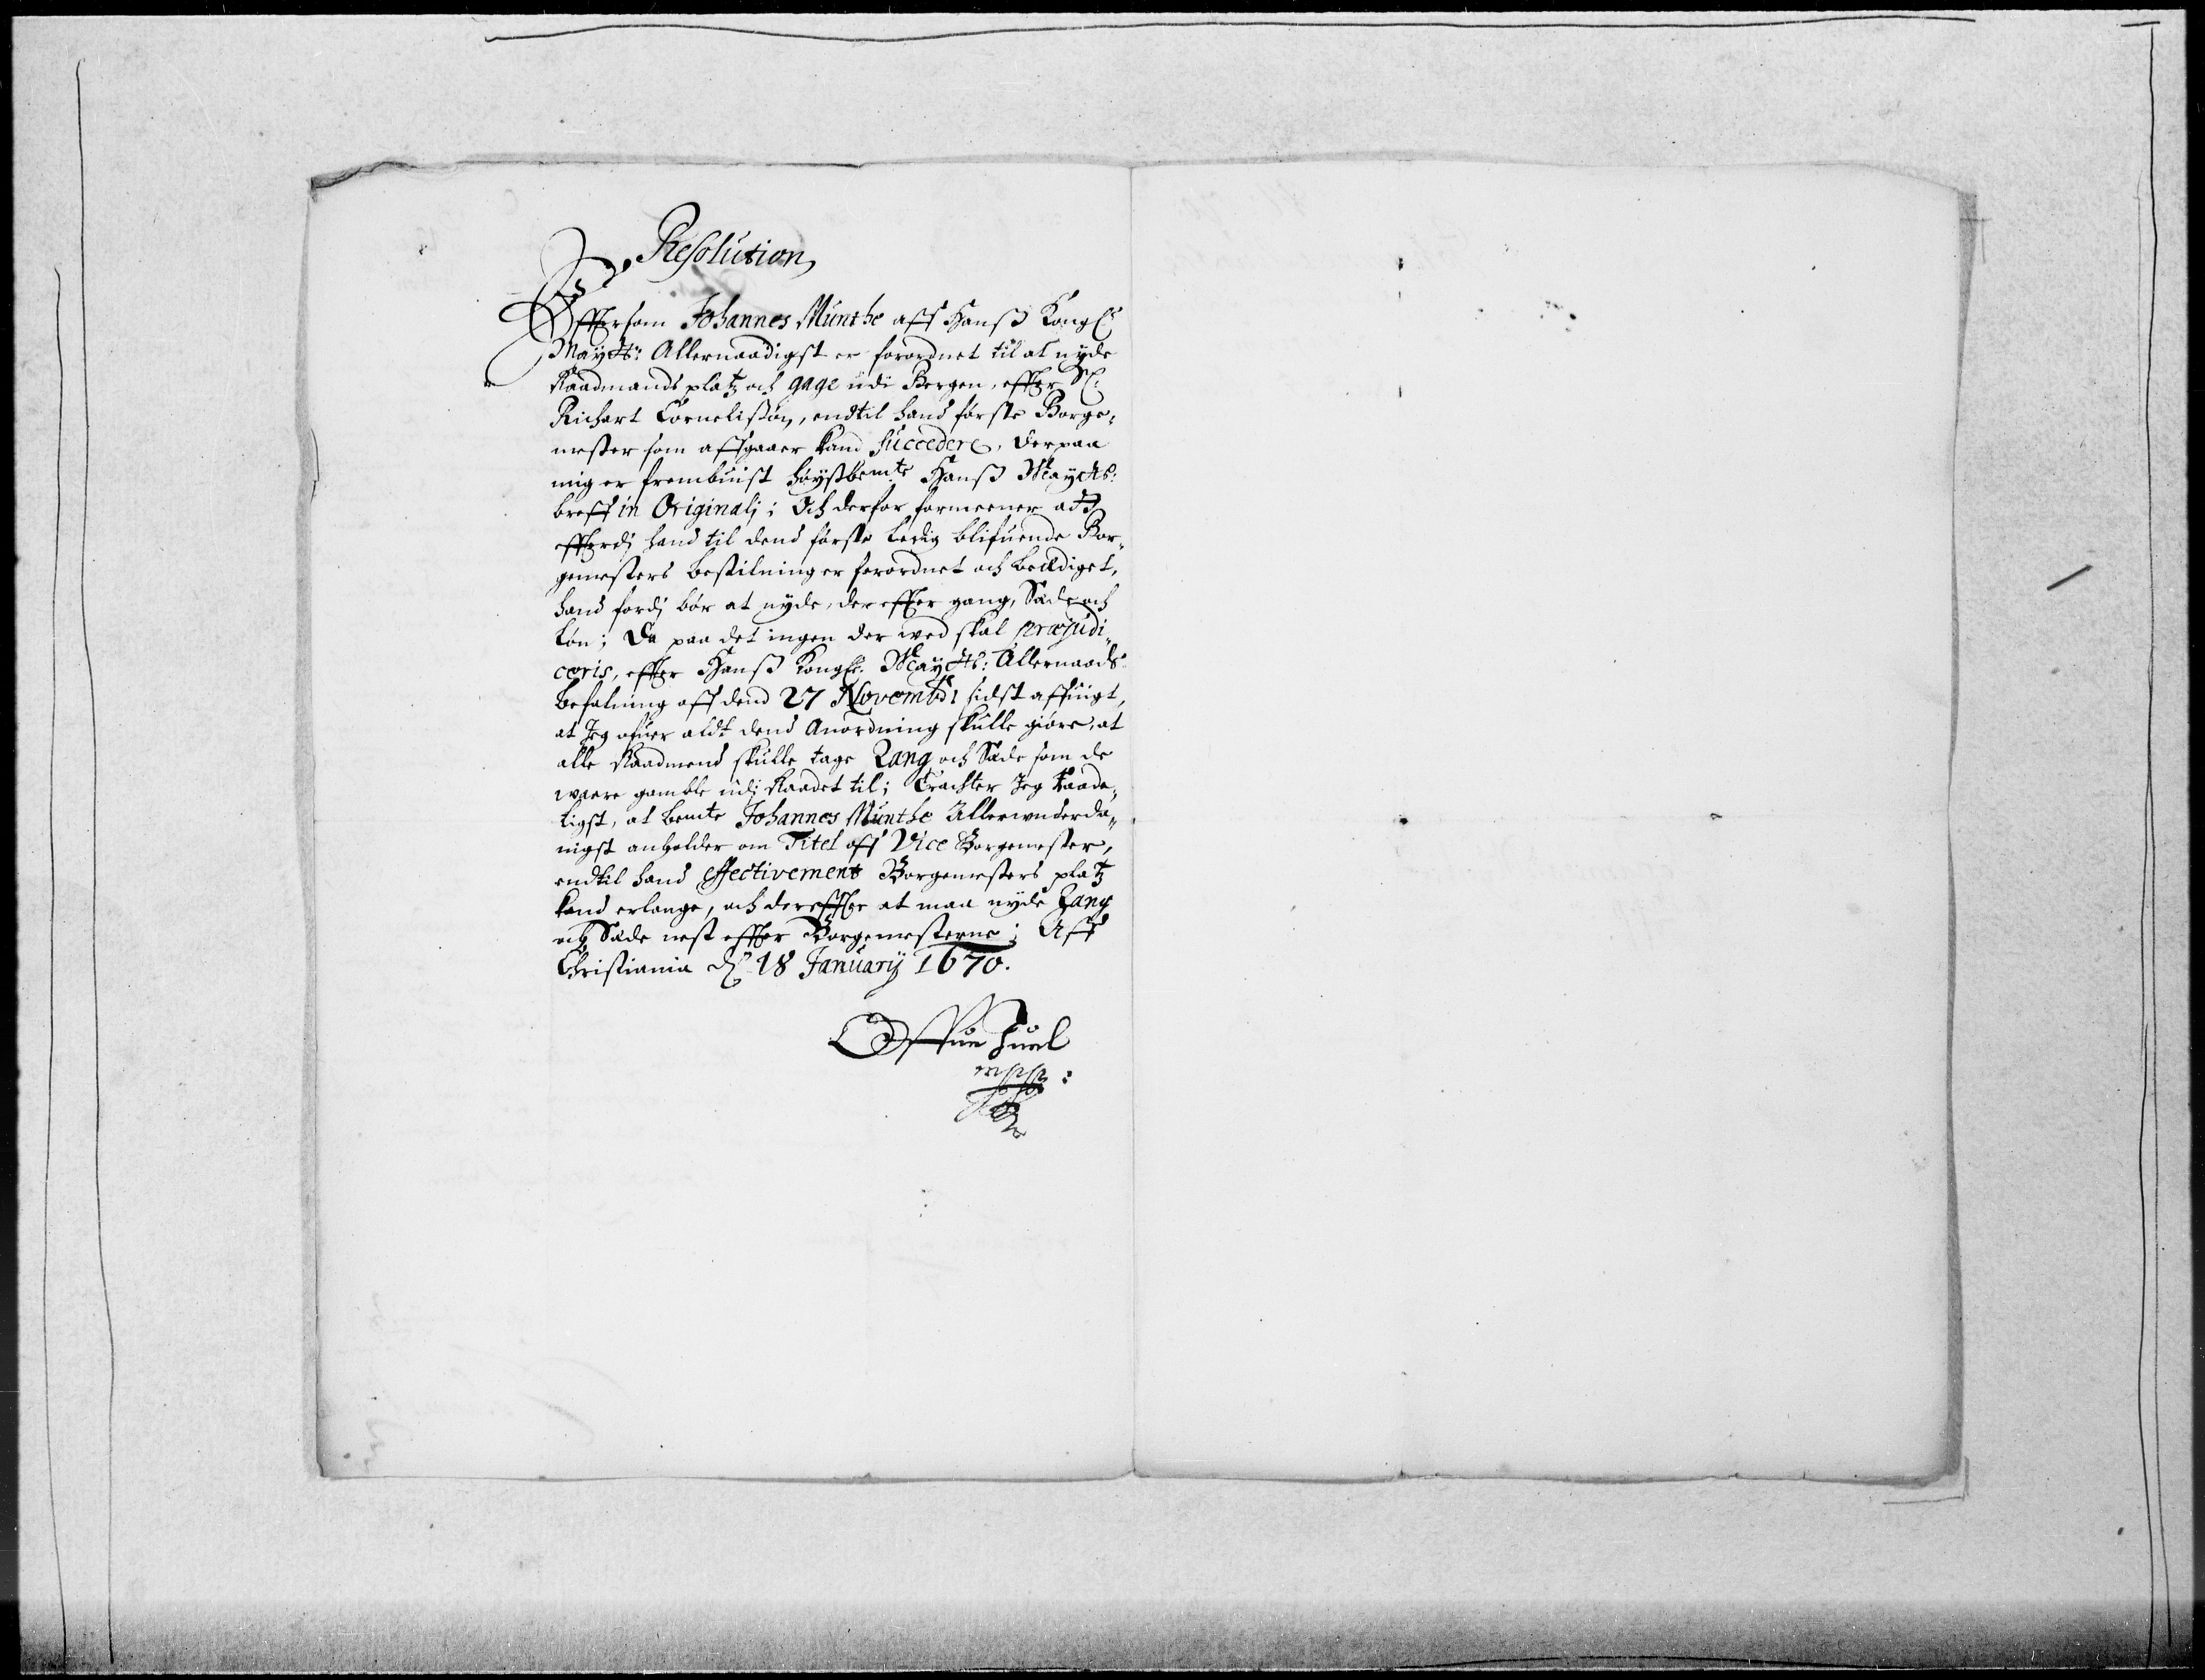 Resolution,
Efftersom Johannes Munthe aff Hanß Kongl:
Mayts: Allernaadigst er forordnet til at nyde
Raadmands platz och gage udi Bergen, effter Sl:
Richart Cornelisøn, endtil hand første Borge-
mester som affgaaer kand succedere, derpaa
mig er frembuist høystbemte Hanß Mayts:
breff in Originalj; Och derfor formeener att
effterdj hand til dend første Ledig blifuende Bor-
gemesters bestilning er forordnet och beædiget,
hand fordj bør at nyde, dereffter gang, Sæde och
Løn; Da paa det ingen der wed skal præjudi-
ceris, effter Hanß Kongl: Mayts: Allernaads:
befalning aff dend 27 Novembr: sidst affuigt,
at Jeg ofuer aldt dend Anordning skulle giøre, at
alle Raadmend skulle tage Rang och Sæde som de
waare gamble udj Raadet til; Eracter Jeg Raade-
ligst, at bemte Johannes Munthe Allerunderda-
nigst anholder om Titel aff Vice Borgemester,
endtil hand effectivement Borgemesters platz
kand erlange, och dereffter at maa nyde Rang
och Sæde nest effter Borgemesterne; Aff
Christiania d: 18 Januarij 1670.
Offue Juel
mppp: